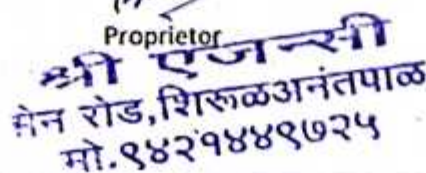 Proprietor
श्री एजन्सी
मेन रोड,शिरूळअनंतपाळ
मो.९४२१४४९७२५